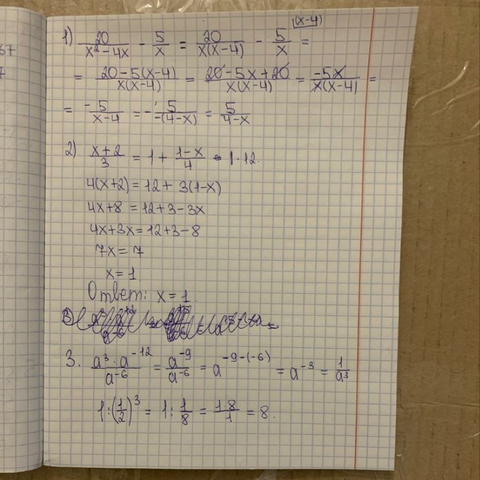 1) 20/(x²-4x) - 5/x = 20/(x(x-4)) - 5/x |(x-4) =
= (20-5(x-4))/(x(x-4)) = (20-5x+20)/(x(x-4)) = -5x/(x(x-4)) =
= -5/(x-4) = -5/(-(4-x)) = 5/(4-x)
2) (x+2)/3 = 1 + (1-x)/4 |·12
4(x+2) = 12 + 3(1-x)
4x+8 = 12+3-3x
4x+3x = 12+3-8
7x = 7
x = 1
Ответ: x = 1
3. (a³·a⁻¹²)/a⁻⁶ = a⁻⁹/a⁻⁶ = a⁻⁹⁻⁽⁻⁶⁾ = a⁻³ = 1/a³
1:(1/2)³ = 1:1/8 = 1·8/1 = 8.